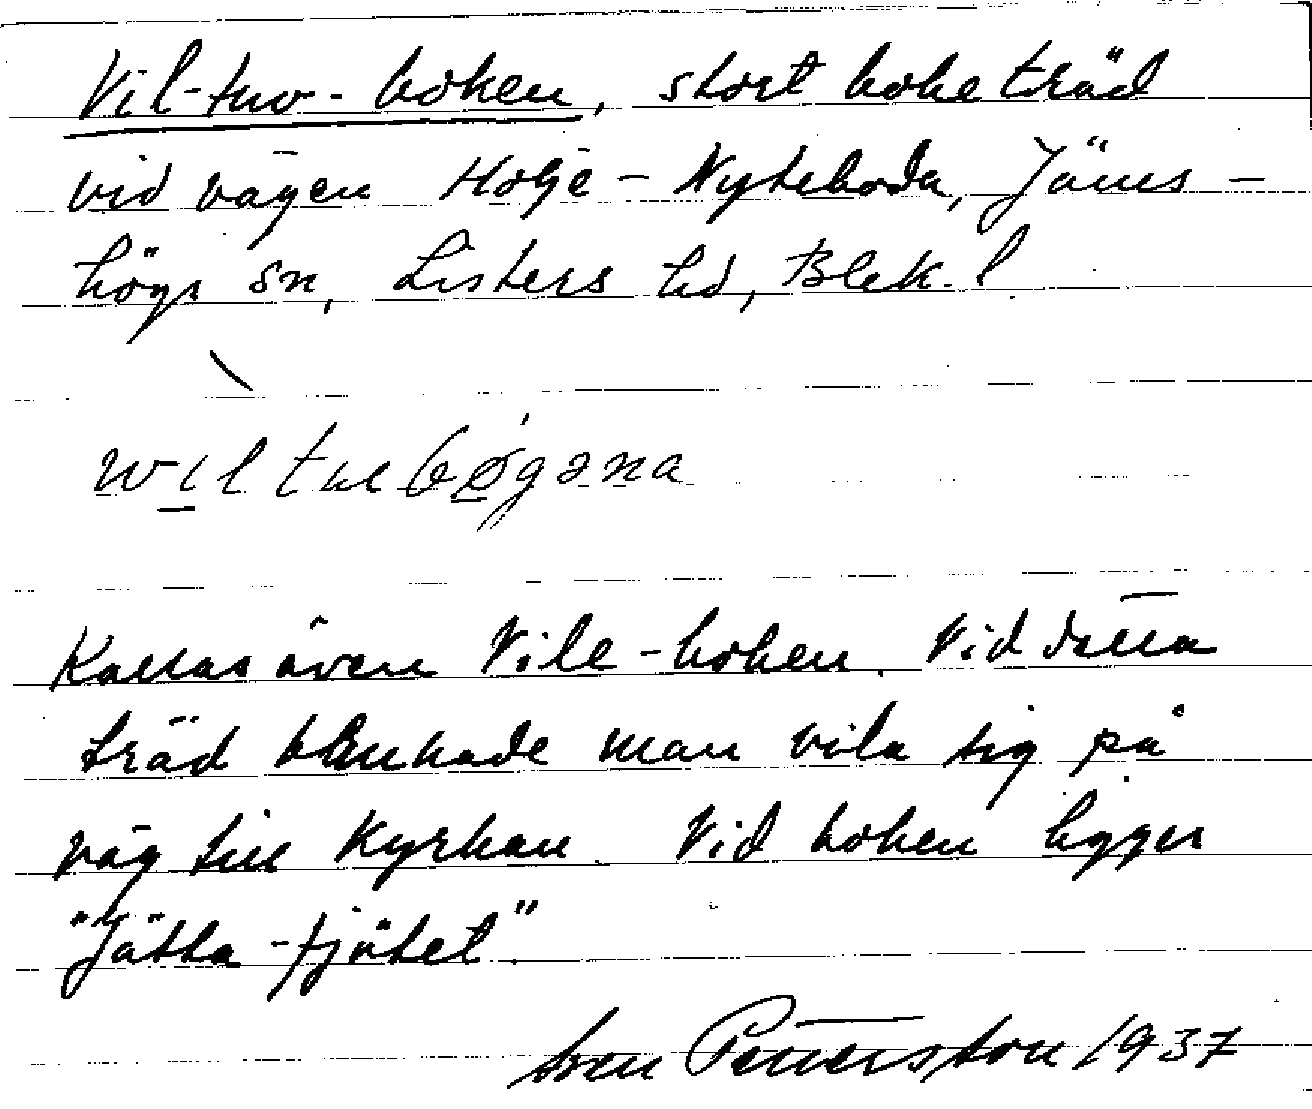 Vil-tuv-boken, stort boketräd
vid vägen Holje - Nyteboda, Jäms-
högs sn, Listers hd, Blek. l.
wiltuebøgəna
Kallas även Vile-boken. Vid detta
träd brukade man vila sig på
väg till kyrkan. Vid boken ligger
"Jätta-fjätet".
Sven Pettersson 1937